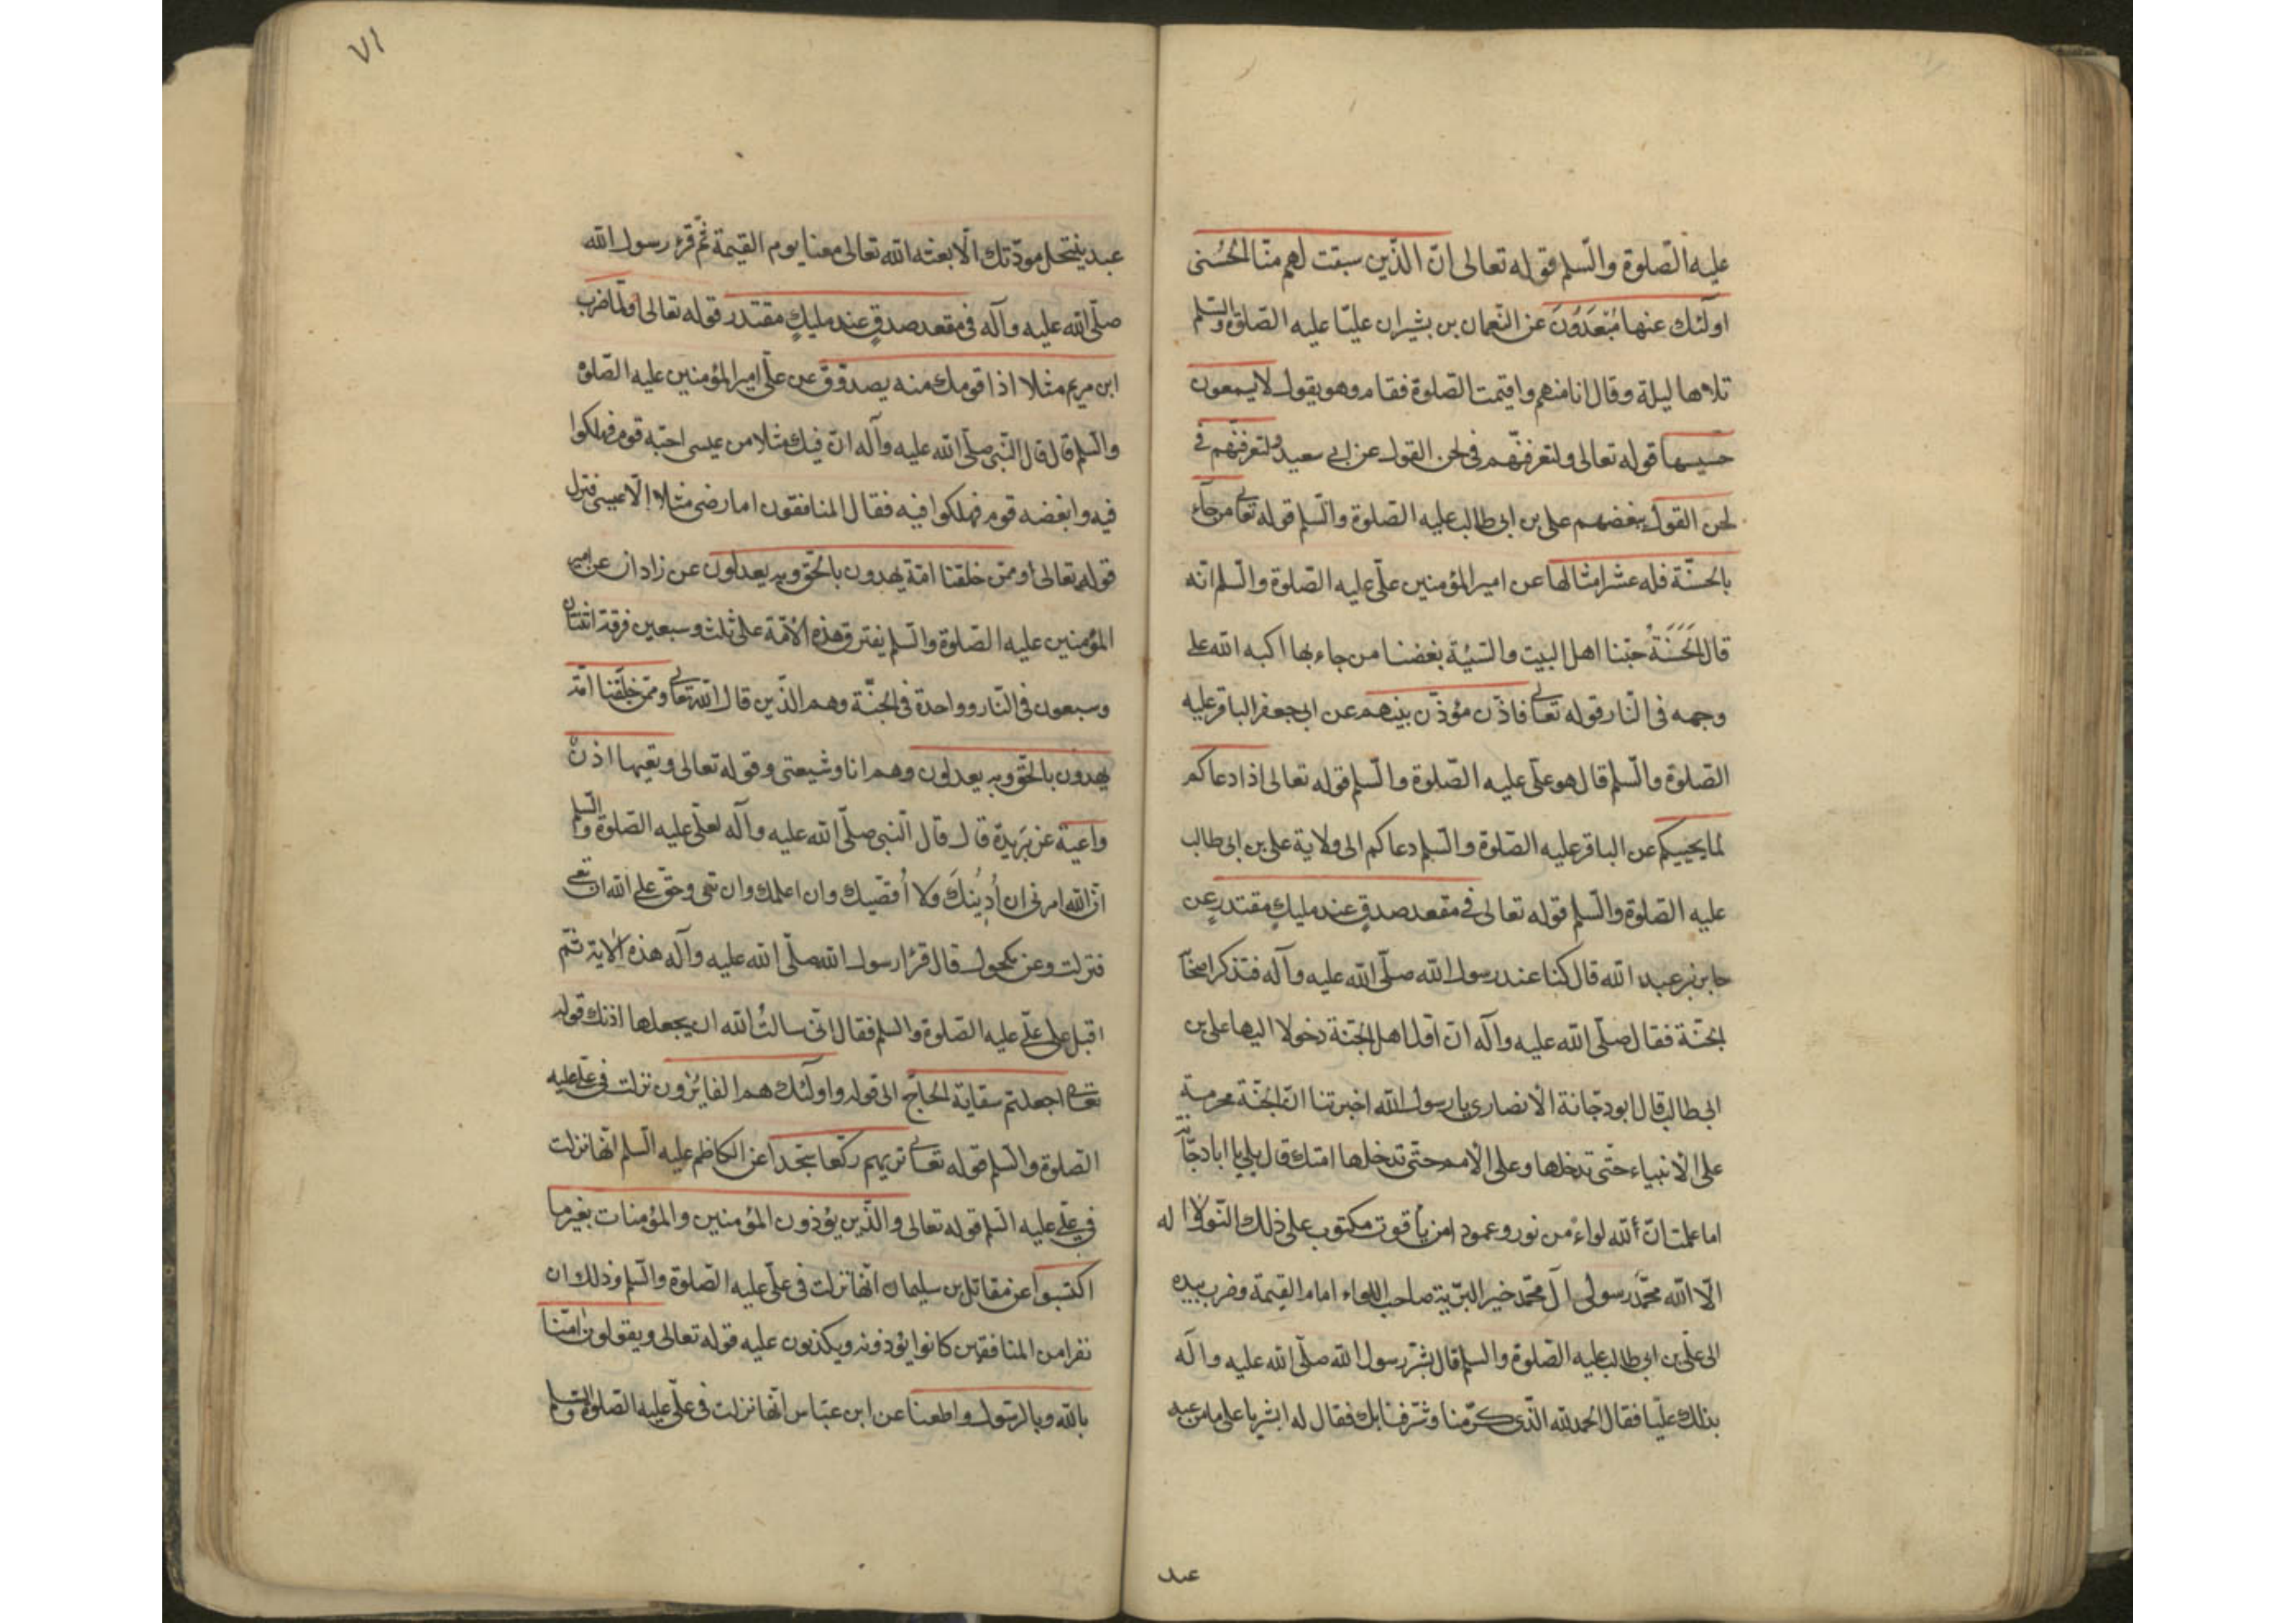 عليه الصّلوة والسّلم قوله تعالى انّ الذّين سبقت لهم منّا الحُسنى
اولئك عنها مُبْعَدُونَ عن النّعمان بن بشيران عليّا عليه الصّلوة والسّلم
تلاها ليلة وقال انا منهم واقيمت الصّلوة فقام وهو يقول لا يسمعون
حسيسها قوله تعالى ولتعرفنّهم فى لحن القول عن ابى سعيد ولتعرفنّهم فى
لحن القول ببغضهم على بن ابى طالب عليه الصّلوة والسّلم قوله تعالى من جاء
بالحسنّة فله عشر امثالها عن امير المؤمنين علّى عليه الصّلوة والسّلم انّه
قال الحَسَنَةُ حبّنا اهل البيت والسّيئة بغضنا من جاء بها اكبه الله على
وجهه فى النّار قوله تعالى فاذّن مؤذّن بينهم عن ابى جعفر الباقر عليه
الصّلوة والسّلم قال هو علّى عليه الصّلوة والسّلم قوله تعالى اذا دعاكم
لما يحييكم عن الباقر عليه الصّلوة والسّلم دعاكم الى ولاية على بن ابى طالب
عليه الصّلوة والسّلم قوله تعالى فى مقعد صدقٍ عند مليكٍ مقتدرٍ عن
جابر بن عبد الله قال كنا عند رسول الله صلّى الله عليه وآله فتذكر اصحابنا
الجنّة فقال صلّى الله عليه وآله انّ اوّل اهل الجنّة دخولا اليها على بن
ابى طالب قال ابو دجّانة الأنصارى يا رسول الله اخبرتنا انّ الجنّة محرمة
على الأنبياء حتّى تدخلها وعلى الأمم حتّى تدخلها امتك قال بلى يا ابا دجّانة
اما علمت انّ لله لواء من نور وعمودا من ياقوت مكتوب على ذلك النّور لا اله
الّا الله محمّد رسولى آل محمّد خير البرّية صاحب اللواء امام القيمة وضرب بيده
الى علّى بن ابى طالب عليه الصلوة والسلم قال بشّر رسول الله صلّى الله عليه وآله
بذلك عليّا فقال الحمد لله الذّى كرّمنا وشرّفنا بك فقال له ابشر يا على ما من عبد
عبد
٧١
عبد ينتحل مودّتك الّا بعثه الله تعالى معنا يوم القيمة ثمّ قرء رسول الله
صلّى الله عليه وآله فى مقعد صدقٍ عند مليكٍ مقتدر قوله تعالى ولمّا ضرب
ابن مريم مثلا اذا قومك منه يصدّون عن علّى امير المؤمنين عليه الصّلوة
والسّلم قال قال النّبى صلّى الله عليه وآله انّ فيك مثلا من عيسى احبّه قوم فهلكوا
فيه وابغضه قوم فهلكوا فيه فقال المنافقون اما رضى مثلا الّا عيسى فنزل
قوله تعالى وممّن خلقنا امّة يهدون بالحّق وبه يعدلون عن زادان عن امير
المؤمنين عليه الصّلوة والسّلم يفترق هذه الأمّة على ثلث وسبعين فرقة اثنتان
وسبعون فى النّار وواحدة فى الجنّة وهم الذّين قال الله تعالى وممّن خلقنا امّة
يهدون بالحّق وبه يعدلون وهم انا وشيعتى وقوله تعالى وتعيها اذنٌ
واعية عن بريدة قال قال النّبى صلّى الله عليه وآله لعلّى عليه الصّلوة والسّلم
انّ الله امرنى ان أُدْنِيكَ ولا أُقصّيك وان اعلمك وان تعى وحقّ على الله ان تعى
فنزلت وعن مكحول قال قرء رسول الله صلّى الله عليه وآله هذه الاية ثمّ
اقبل على علّى عليه الصّلوة والسلم فقال انّى سالتُ الله ان يجعلها اذنك قوله
تعالى اجعلتم سقاية الحاجّ الى قوله واولئك هم الفايزون نزلت فى علّى عليه
الصّلوة والسّلم قوله تعالى تريهم ركّعا سجّدا عن الكاظم عليه السّلم انّها نزلت
فى علّى عليه السّلم قوله تعالى والذّين يؤذون المؤمنين والمؤمنات بغير ما
اكتسبوا عن مقاتل بن سليمان انّها نزلت فى علّى عليه الصّلوة والسّلم وذلك ان
نفرا من المنافقين كانوا يؤذونه ويكذبون عليه قوله تعالى ويقولون امنّا
بالله وبالرّسول واطعنا عن ابن عبّاس انّها نزلت فى علّى عليه الصّلوة والسّلم